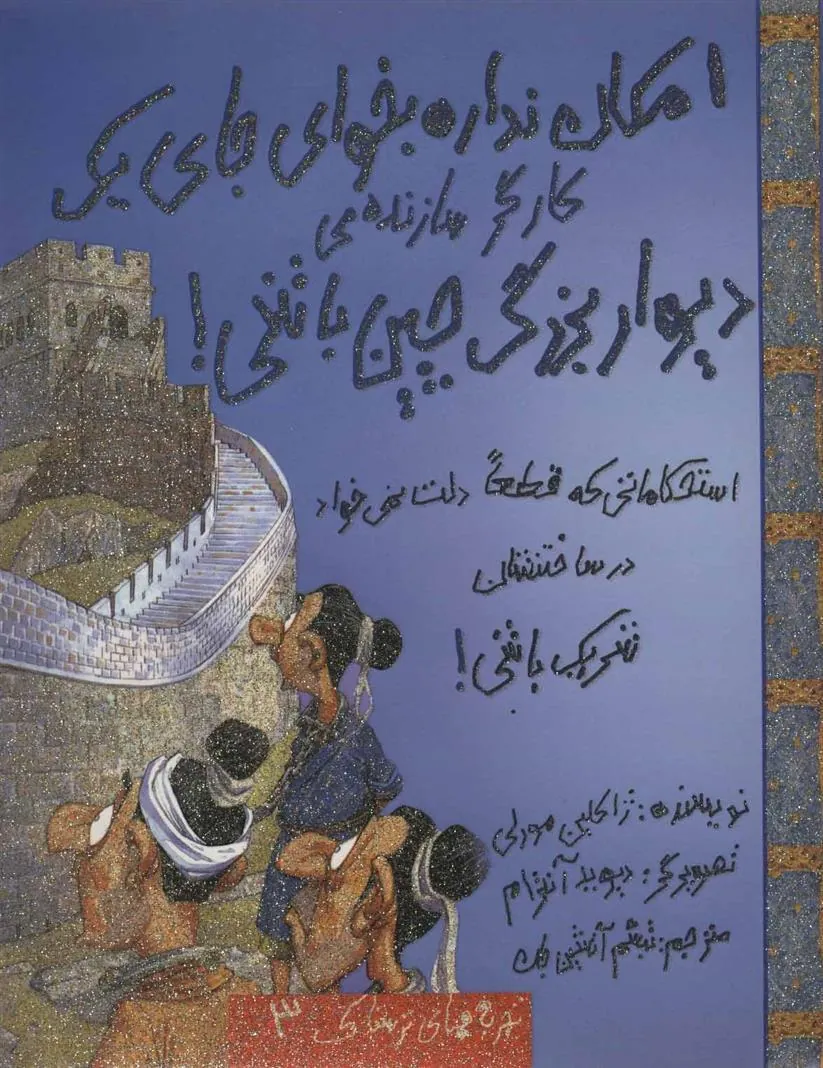 امکان نداره بخوای جای یک
کارگر سازنده ی
دیوار بزرگ چین باشی!
استحکاماتی که قطعاً دلت نمی خواد
در ساختنشان
شریک باشی!
نویسنده: ژاکلین مورلی
تصویرگر: دیوید آنترام
مترجم: تبسّم آتشین جان
تجربه های ترسناک ۳